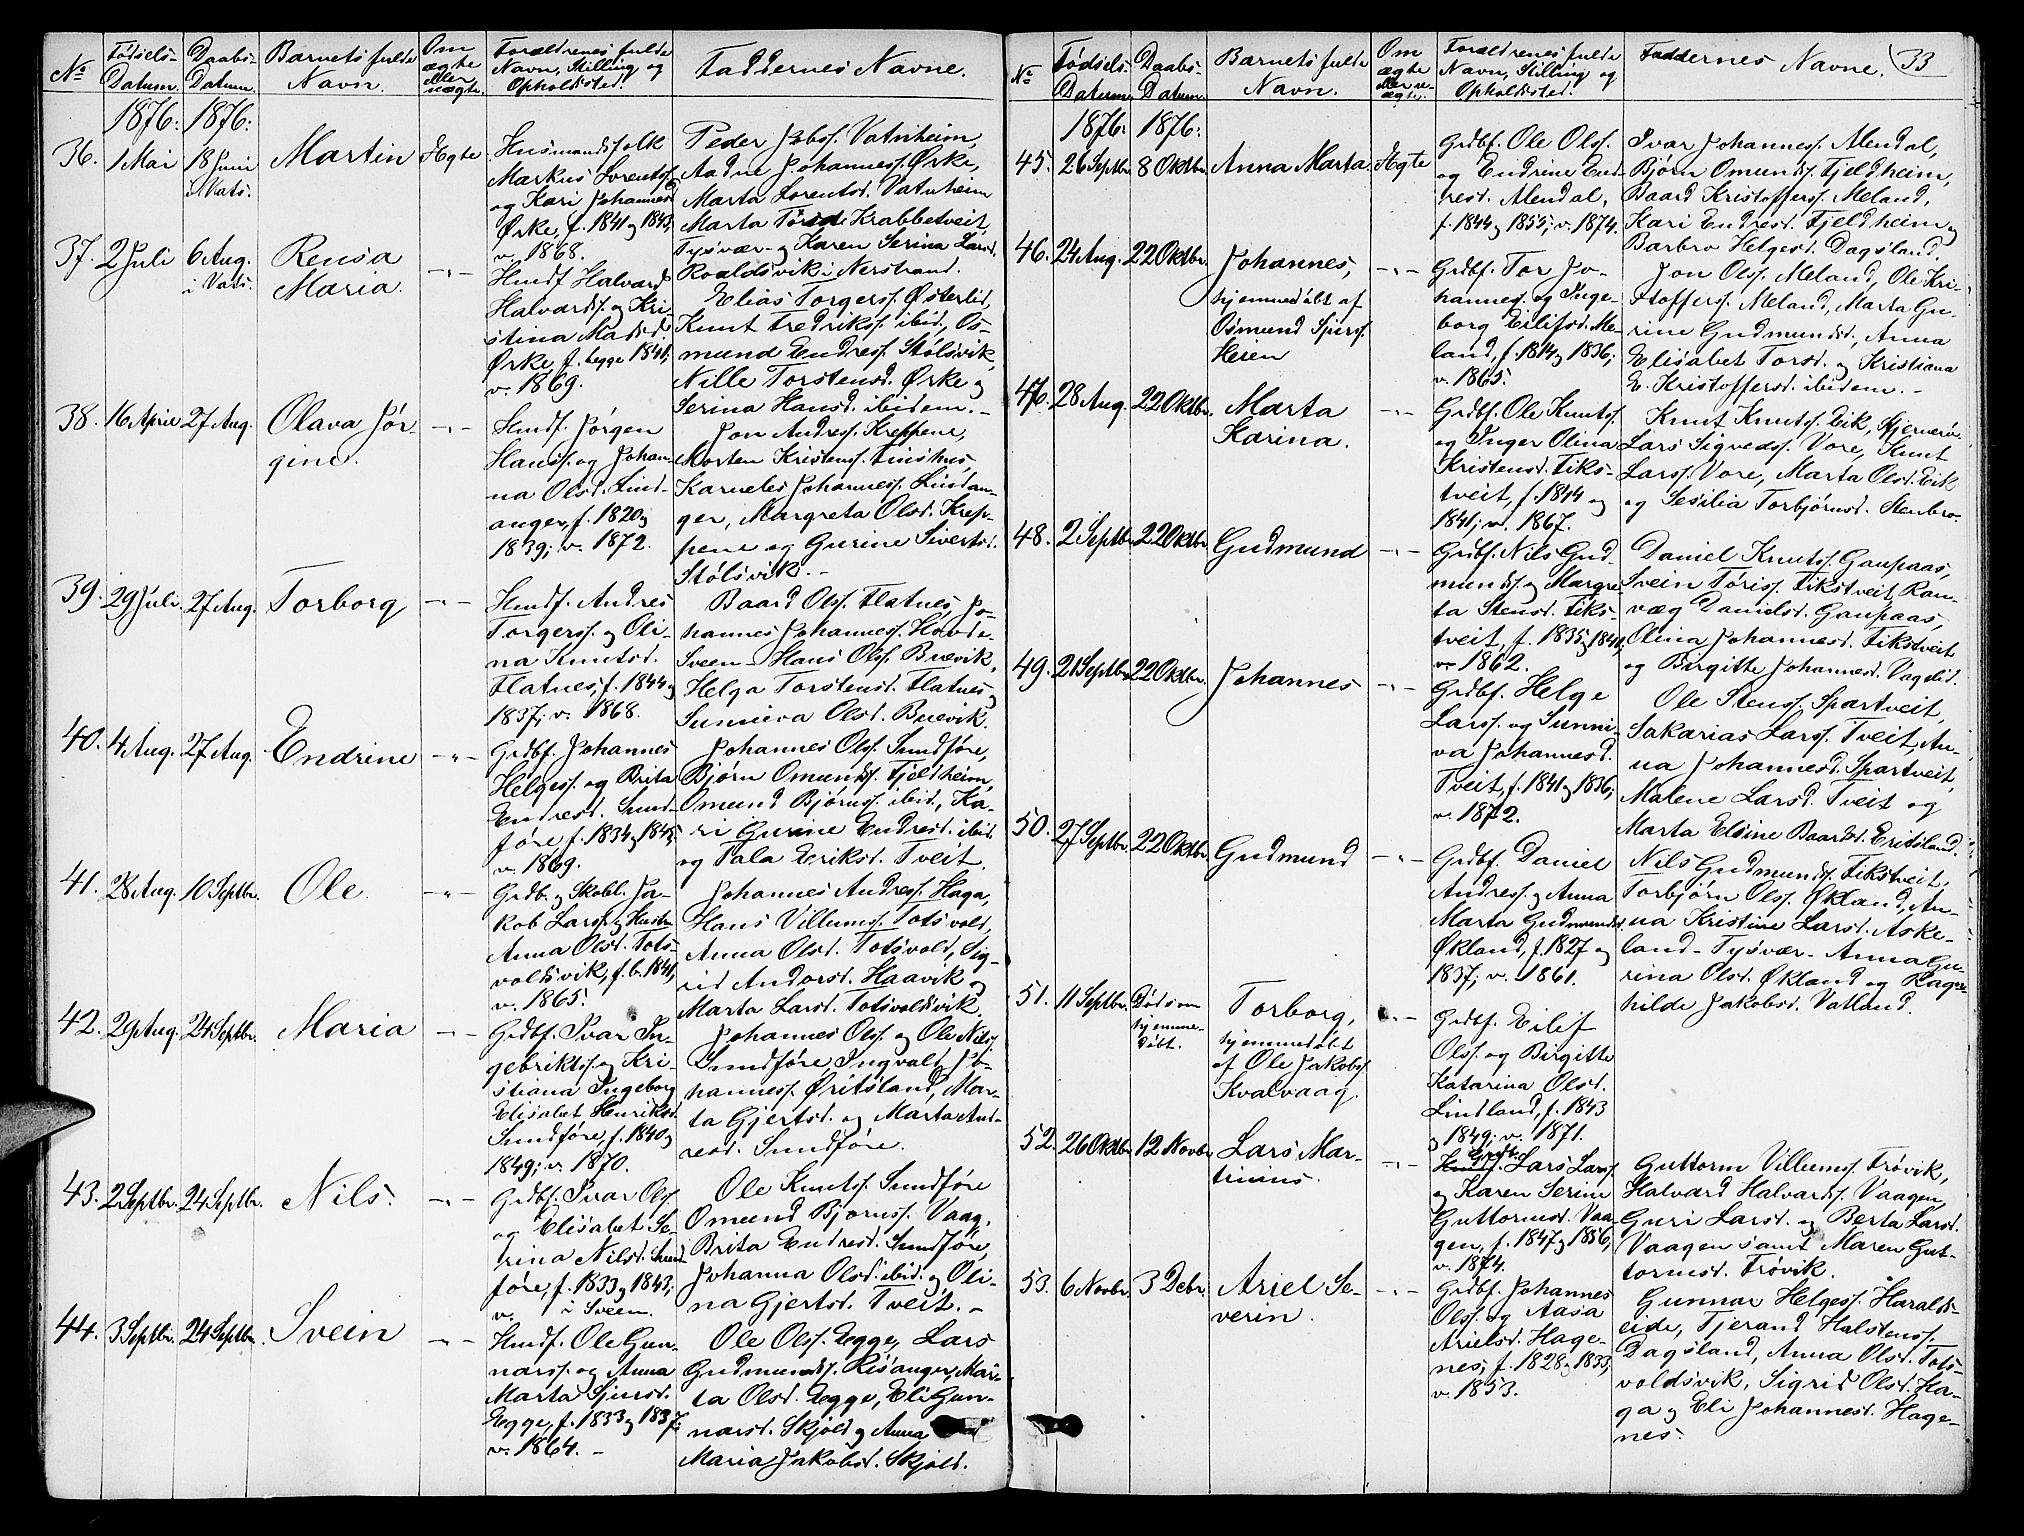 No
Fødsels-
Datum.
Daabs-
Datum.
Barnets fulde
Navn.
Om
ægte
eller
uægte.
Forældrenes fulde
Navn, Stilling og
Opholdssted.
Faddernes Navne.
1876: 1876:
36. 1 Mai 18 Juni
i Vats.
Martin
Ægte
Husmandsfolk
Markus Lorentss.
og Kari Johannesd.
Ørke, f. 1841 og 1843,
v. 1868.
Peder Jobss. Vatnheim,
Aadne Johanness. Ørke,
Marta Lorentsd. Vatnheim
Marta Torsd. Krabbetveit,
Tysvær - og Karen Serina Larsd.
Roaldsvik i Nerstrand.
37. 2 Juli 6 Aug.
i Vats.
Rensa
Maria.
-"-
Husmf. Halvard
Halvardss. og Kri-
stina Madsd.
Ørke, f. begge 1841,
v. 1869.
Elias Torgerss. Østerlid,
Knut Fredrikss. ibid., Os-
mund Endress. Stølsvik,
Nille Torstensd. Ørke og
Serina Hansd. ibidem. -
38. 16 April 27 Aug.
Olava Jør-
gine.
-"-
Husmf. Jørgen
Hanss. og Johan-
na Olsd. Lind-
anger, f. 1820 og
1839; v. 1872.
Jon Andress. Kreppene,
Morten Kristenss. Tinshus,
Karneles Johanness. Lindan-
ger, Margreta Olsd. Krep-
pene og Gurine Sivertsd.
Stølsvik. -
39. 29 Juli. 27 Aug.
Torborg
-"-
Husmf. Andres
Torgerss. og Oli-
na Knutsd.
Flatnes, f. 1844 og
1837; v. 1868.
Baard Olss. Flatnes, Jo-
hannes Johanness. Hovde -
Sveen - Hans Olss. Buevik,
Helga Torstensd. Flatnes og
Sunniva Olsd. Buevik.
40. 4 Aug. 27 Aug.
Endrine
-"-
Grdbf. Johannes
Helgess. og Brita
Endresd. Sund-
føre, f. 1834 og 1845,
v. 1869.
Johannes Olss. Sundføre,
Bjørn Omundss. Fjeldheim,
Omund Bjørnss. ibid., Ka-
ri Gurine Endresd. ibid.
og Tala Eriksd. Tveit.
41. 28 Aug. 10 Septbr.
Ole.
-"-
Grdb. og Skobl. Ja-
kob Larss. og Hustru
Anna Olsd. Tots-
voldsvik, f. b. 1841,
v. 1865.
Johannes Andress. Haga,
Hans Villumss. Totsvold,
Anna Olsd. Totsvold, Sig-
rid Andorsd. Haavik og
Marta Larsd. Totsvoldsvik.
42. 29 Aug. 24 Septbr.
Maria
-"-
Grdbf. Ivar In-
gebriktss. og Kri-
stiana Ingeborg
Elisabet Henriksd.
Sundføre, f. 1840 og
1849; v. 1870.
Johannes Olss. og Ole Nilss.
Sundføre, Ingvald Jo-
hanness. Øritsland, Mar-
ta Gjertsd. og Marta And-
resd. Sundføre.
43. 2 Septbr. 24 Septbr.
Nils.
-"-
Grdbf. Ivar Olss.
og Elisabet Se-
rina Nilsd. Sund-
føre, f. 1833 og 1843,
v. i Sveen.
Ole Knutss. Sundføre
Omund Bjørnss. Vaag,
Brita Endresd. Sundføre,
Johanna Olsd. ibid. og Oli-
na Gjertsd. Tveit. -
44. 3 Septbr. 24 Septbr.
Svein
-"-
Husmf. Ole Gun-
narss. og Anna
Marta Sjursd.
Egge, f. 1833 og 1837.
v. 1864. -
Ole Olss. Egge, Lars
Gudmundss. Risanger, Mar-
ta Olsd. Egge, Eli Gun-
narsd. Skjold og Anna
Maria Jakobsd. Skjold.
No
Fødsels-
Datum.
Daabs-
Datum.
Barnets fulde
Navn.
Om
ægte
eller u-
ægte.
Forældrenes fulde
Navn, Stilling og
Opholdssted.
Faddernes Navne.
33
1876: 1876:
45. 26 Septbr. 8 Oktbr.
Anna Marta.
Ægte
Grdbf. Ole Olss.
og Endrine End-
resd. Alendal,
f. 1844 og 1855; v. 1874.
Ivar Johanness. Alendal,
Bjørn Omundss. Fjeldheim,
Baard Kristofferss. Meland,
Kari Endresd. Fjeldheim og
Barbro Helgesd. Dagsland.
46. 24 Aug. 22 Oktbr.
Johannes,
hjemmedøbt af
Osmund
Heien
-"-
Grdbf. Tor Jo-
hanness. og Inge-
borg Eilifsd. Me-
land, f. 1814 og 1836;
v. 1865.
Jon Olss. Meland, Ole Kri-
stofferss. Meland, Marta Gu-
rine Gudmundsd., Anna
Elisabet Torsd. og Kristiana
E. Kristoffersd. ibidem. -
47. 28 Aug. 22 Oktbr.
Marta
Karina.
-"-
Grdbf. Ole Knutss.
og Inger Olina
Kristensd. Fiks-
tveit, f. 1844 og
1841; v. 1867.
Knut Knutss. Eik,
Lars Sigvedss. Vore, Knut
Larss. Vore, Marta Olsd. Eik
og Sesilia Torbjørnsd. Stenbro.
48. 2 Septbr. 22 Oktbr.
Gudmund
-"-
Grdbf. Nils Gud-
mundss. og Margre-
ta Stensd. Fiks-
tveit, f. 1835 og 1841,
v. 1862.
Daniel Knutss. Gaupaas,
Svein Toriss. Fikstveit, Ran-
væg Danielsd. Gaupaas,
Olina Johannesd. Fikstveit
og Birgitte Johannesd. Vagelid.
49. 21 Septbr. 22 Oktbr.
Johannes
-"-
Grdbf. Helge
Larss. og Sunni-
va Johannesd.
Tveit, f. 1841 og 1836;
v. 1872.
Ole Stenss. Spartveit,
Sakarias Larss. Tveit, An-
na Johannesd. Spartveit,
Malene Larsd. Tveit og
Marta Elsine Baardsd. Eritsland.
50. 27 Septbr. 22 Oktbr.
Gudmund
-"-
Grdbf. Daniel
Andress. og Anna
Marta Gudmundsd.
Økland, f. 1827 og
1837; v. 1861.
Nils Gudmundss. Fikstveit,
Torbjørn Olss. Økland, An-
na Kristine Larsd. Aske-
land - Tysvær - Anna Gu-
rina Olsd. Økland og Ragn-
hilde Jakobsd. Vatland.
51. 11 Septbr. Død som
hjemme-
døbt.
Torborg,
hjemmedøbt
af Ole Jakobss.
Kvalvaag.
-"-
Grdbf. Eilif
Olss. og Birgitte
Katarina Olsd.
Lindland, f. 1843
og 1849; v. 1871.
52. 26 Oktbr. 12 Novbr.
Lars Mar-
tinius.
-"-
Grdbf. Lars Larss.
og Karen Serine
Guttormsd. Vaa-
gen, f. 1847 og 1856,
v. 1874.
Guttorm Villumss. Frøvik,
Halvard Halvardss. Vaagen,
Guri Larsd. og Berta Larsd.
Vaagen samt Maren Gut-
tormsd. Frøvik.
53. 6 Novbr. 3 Debr.
Ariel Se-
verin.
-"-
Grdbf. Johannes
Olss. og Aasa
Arielsd. Hage-
nes, f. 1828 og 1833,
v. 1853.
Gunnar Helgess. Haralds-
eide, Tjerand Halstenss.
Dagsland, Anna Olsd. Tots-
voldsvik, Sigrid Olsd. Ha-
ga og Eli Johannesd. Hage-
nes.